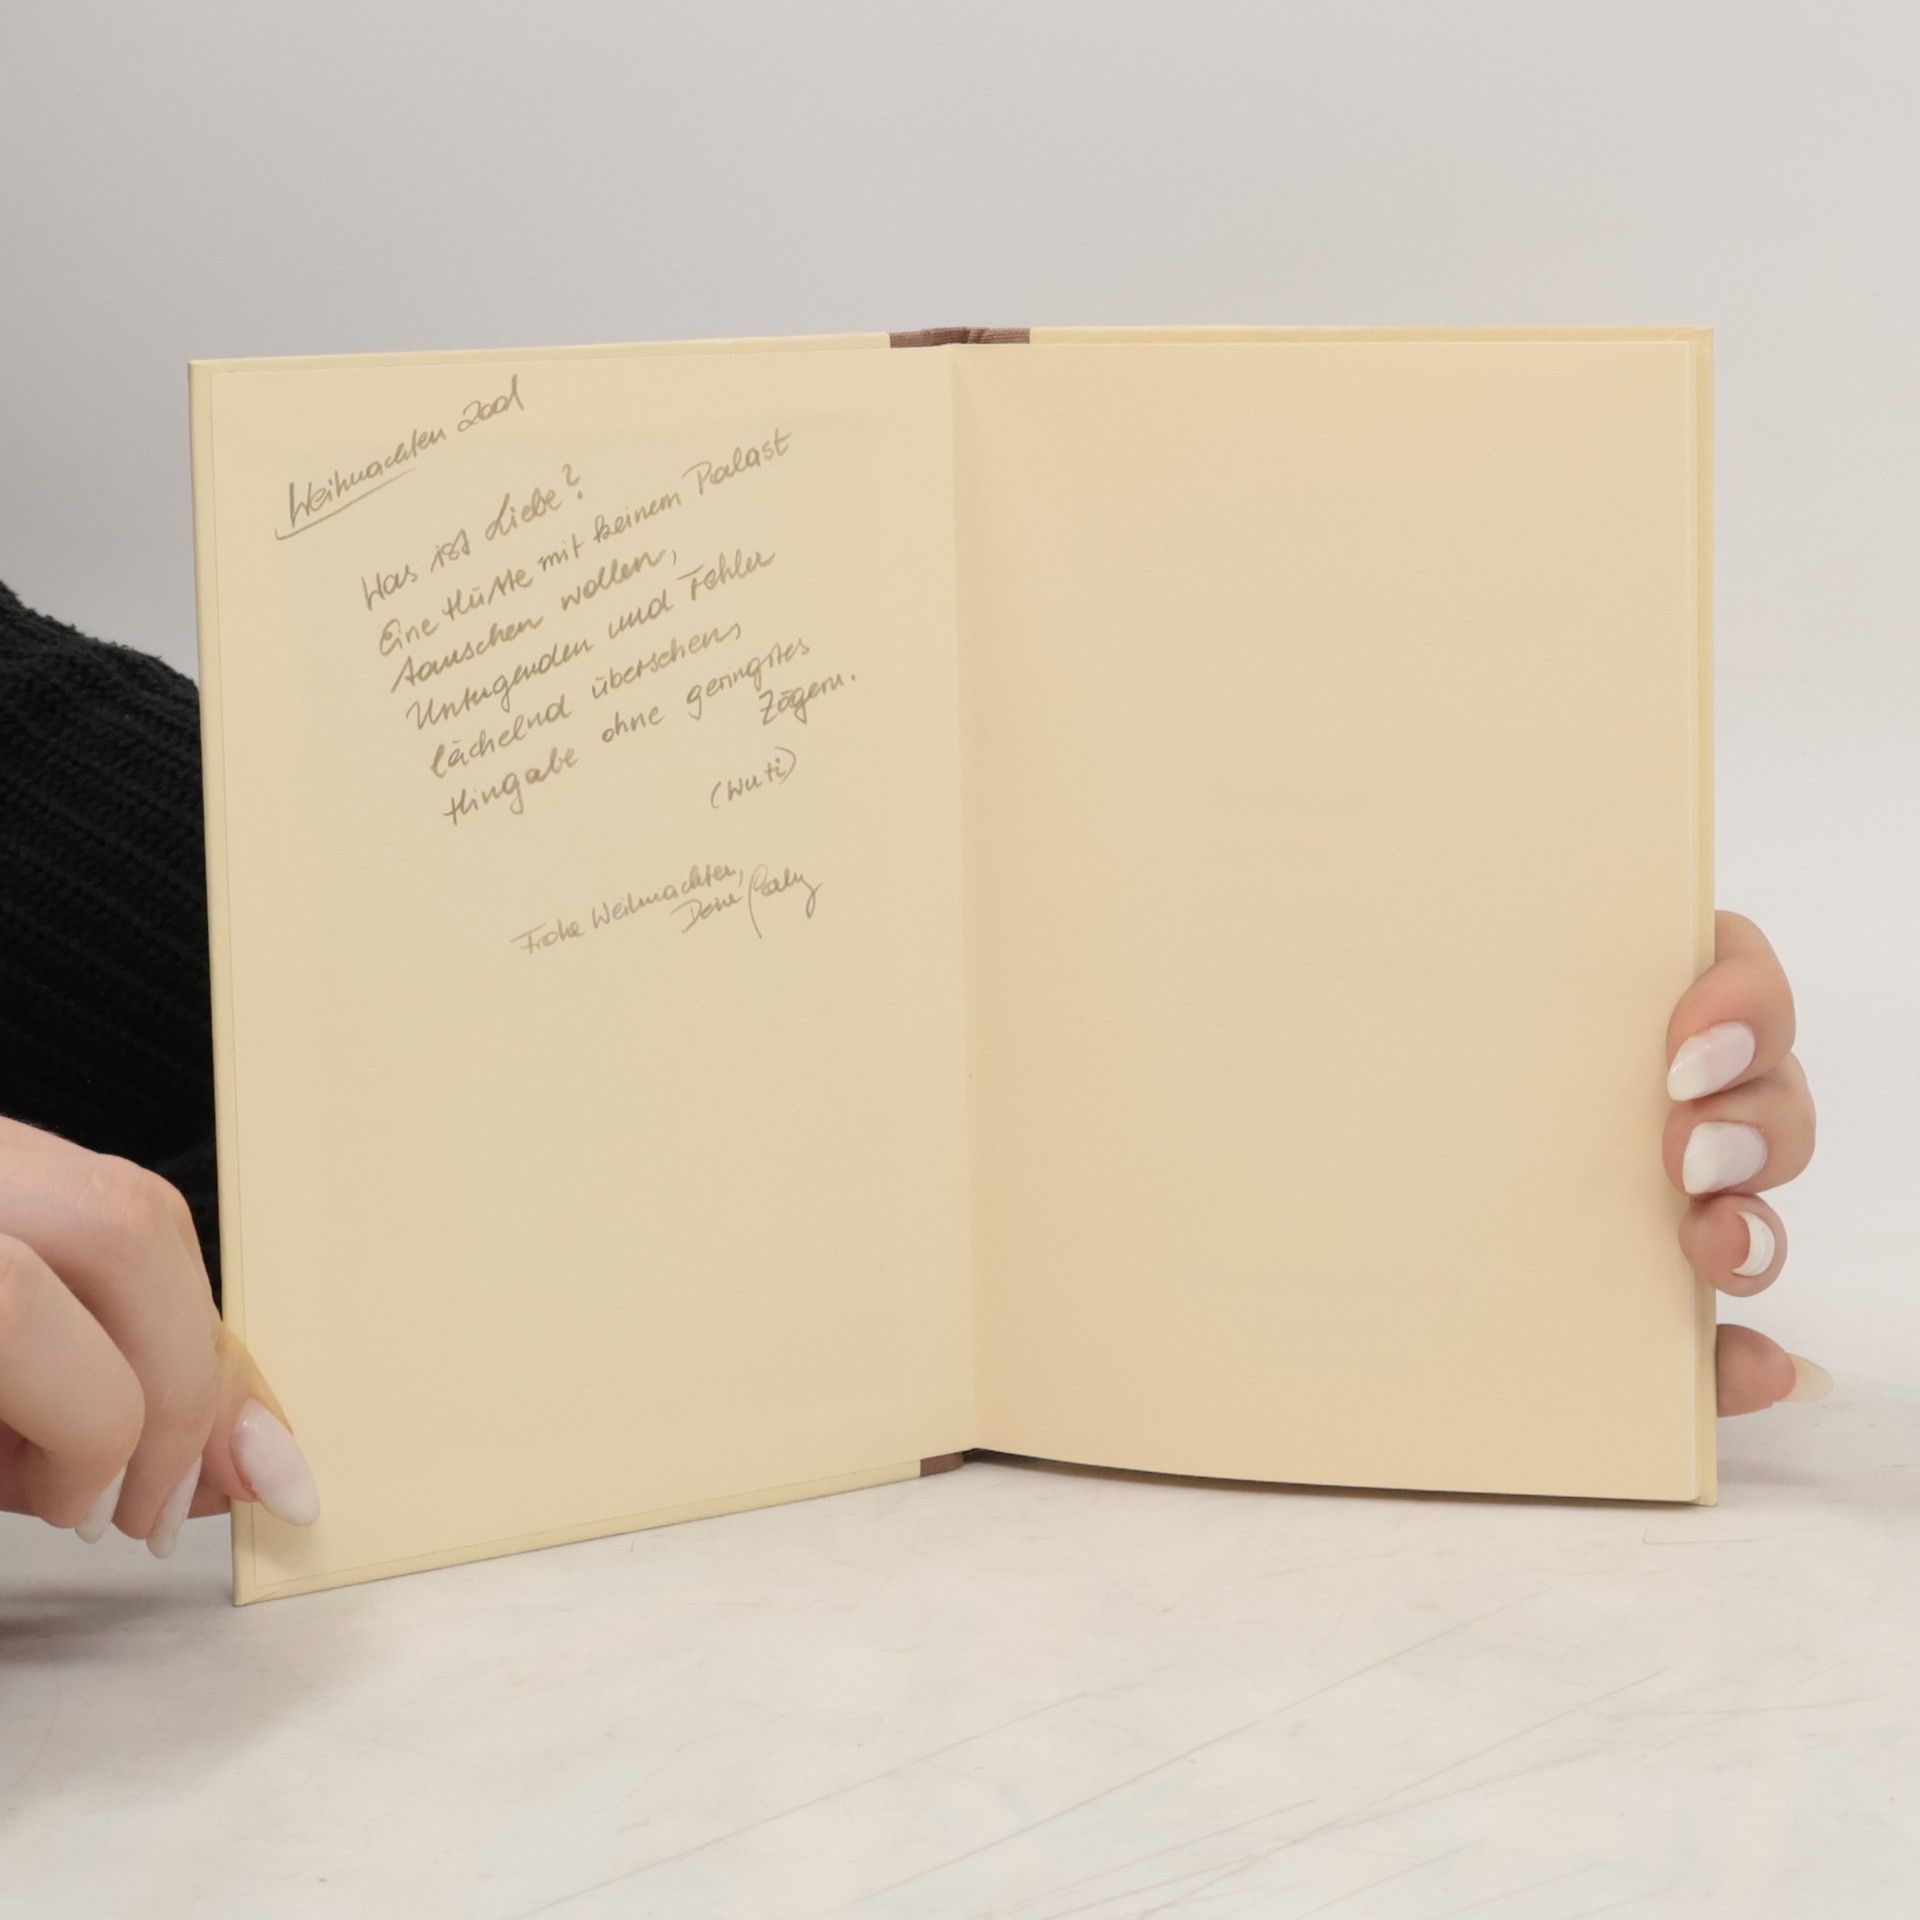 Weihnachten 2001
Was ist Liebe?
Eine Hütte mit keinem Palast
tauschen wollen,
Untugenden und Fehler
lächelnd übersehen,
Hingabe ohne geringstes
Zögern.
(Wu ti)
Frohe Weihnachten,